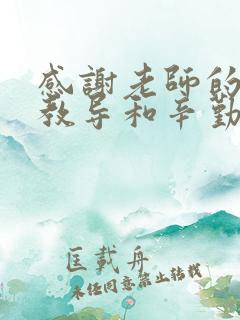 感謝老師的
教导和辛勤
匡載舟
未经同意禁止转载